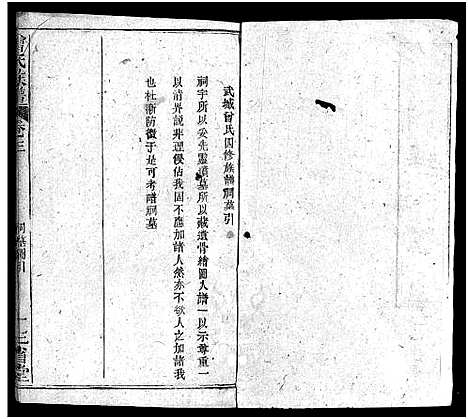 武城曾氏四修族譜祠墓引
祠宇所以妥先靈墳墓所以藏遺骨繪圖入譜一以示尊重一
以清界說非理侵佔我固不應加諸人然亦不欲人之加諸我
也杜漸防微于是可考譜祠墓
曾氏族譜
卷三
祠墓圖引
三省堂